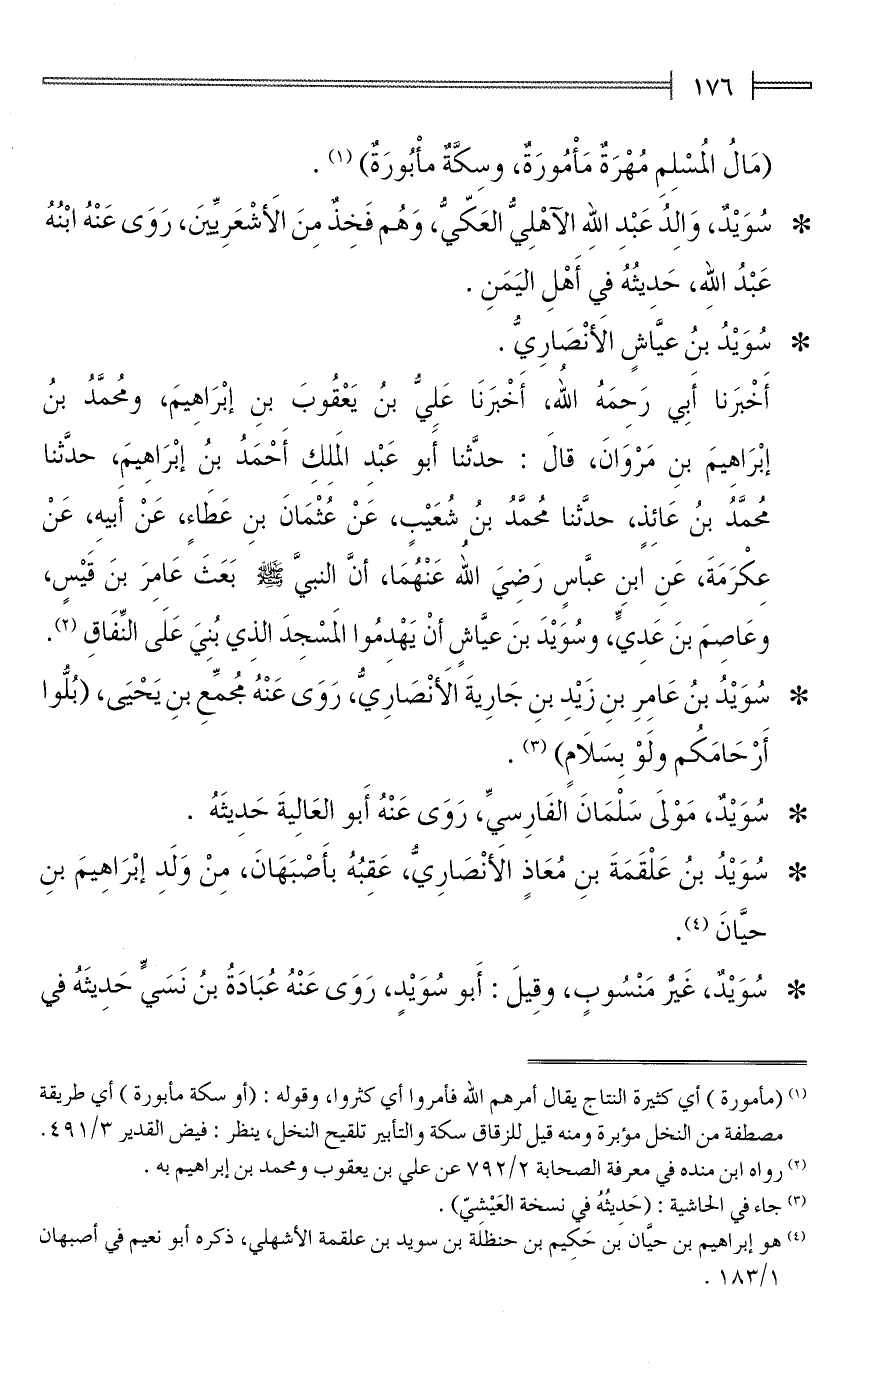 ١٧٦
(مَالُ المُسْلِمِ مُهْرَةٌ مَأْمُورَةٌ، وسِكَّةٌ مأْبُورَةٌ) (١) .
* سُوَيْدٌ، وَالِدُ عَبْدِ الله الآهْلِيُّ العَكّيُّ، وَهُم فَخِذٌ مِنَ الأَشْعَرِيِّينَ، رَوَى عَنْهُ ابْنُهُ
عَبْدُ اللهِ، حَدِيثُهُ في أَهْلِ اليَمَنِ .
* سُوَيْدُ بنُ عيَّاشٍ الأَنْصَارِيُّ .
أَخْبَرَنا أَبي رَحِمَهُ اللهُ، أَخْبَرَنَا عَلِيُّ بنُ يَعْقُوبَ بنِ إبْرَاهِيمَ، ومُحمَّدُ بنُ
إبْرَاهِيمَ بنِ مَرْوَانَ، قالَ : حدَّثنا أبو عَبْدِ المَلِكِ أَحْمَدُ بنُ إبْرَاهِيمَ، حدَّثنا
مُحمَّدُ بنُ عَائِذٍ، حدَّثنا مُحمَّدُ بنُ شُعَيْبٍ، عَنْ عُثْمَانَ بنِ عَطَاءٍ، عَنْ أَبيهِ، عَنْ
عِكْرَمَةَ، عَنِ ابنِ عبَّاسٍ رَضِيَ اللهُ عَنْهُمَا، أنَّ النبيَّ ﷺ بَعَثَ عَامِرَ بنَ قَيْسٍ،
وعَاصِمَ بنَ عَديٍّ، وسُوَيْدَ بنَ عيَّاشٍ أنْ يَهْدِمُوا المَسْجِدَ الذي بُنِيَ عَلَى النِّفَاقِ (٢).
* سُوَيْدُ بنُ عَامِرِ بنِ زَيْدِ بنِ جَارِيةَ الأَنْصَارِيُّ، رَوَى عَنْهُ مُجمِّعُ بنِ يَحْيَى، (بُلُّوا
أَرْحَامَكُم ولَوْ بِسَلَامٍ) (٣) .
* سُوَيْدٌ، مَوْلَى سَلْمَانَ الفَارِسيِّ، رَوَى عَنْهُ أَبو العَاليةَ حَدِيثَهُ .
* سُوَيْدُ بنُ عَلْقَمَةَ بنِ مُعَاذٍ الأَنْصَارِيُّ، عَقِبُهُ بأَصْبَهَانَ، مِنْ وَلَدِ إبْرَاهِيمَ بنِ
حيَّانَ (٤).
* سُوَيْدٌ، غَيْرُ مَنْسُوبٍ، وقِيلَ : أَبو سُوَيْدٍ، رَوَى عَنْهُ عُبَادَةُ بنُ نَسَيٍّ حَدِيثَهُ في
(١) (مأمورة ) أي كثيرة النتاج يقال أمرهم الله فأمروا أي كثروا، وقوله : (أو سكة مأبورة ) أي طريقة
مصطفة من النخل مؤبرة ومنه قيل للزقاق سكة والتأبير تلقيح النخل، ينظر : فيض القدير ٤٩١/٣ .
(٢) رواه ابن منده في معرفة الصحابة ٧٩٢/٢ عن علي بن يعقوب ومحمد بن إبراهيم به .
(٣) جاء في الحاشية : (حَديثُهُ في نسخة العَيْشيّ) .
(٤) هو إبراهيم بن حيَّان بن حَكِيم بن حنظلة بن سويد بن علقمة الأشهلي، ذكره أبو نعيم في أصبهان
١٨٣/١ .